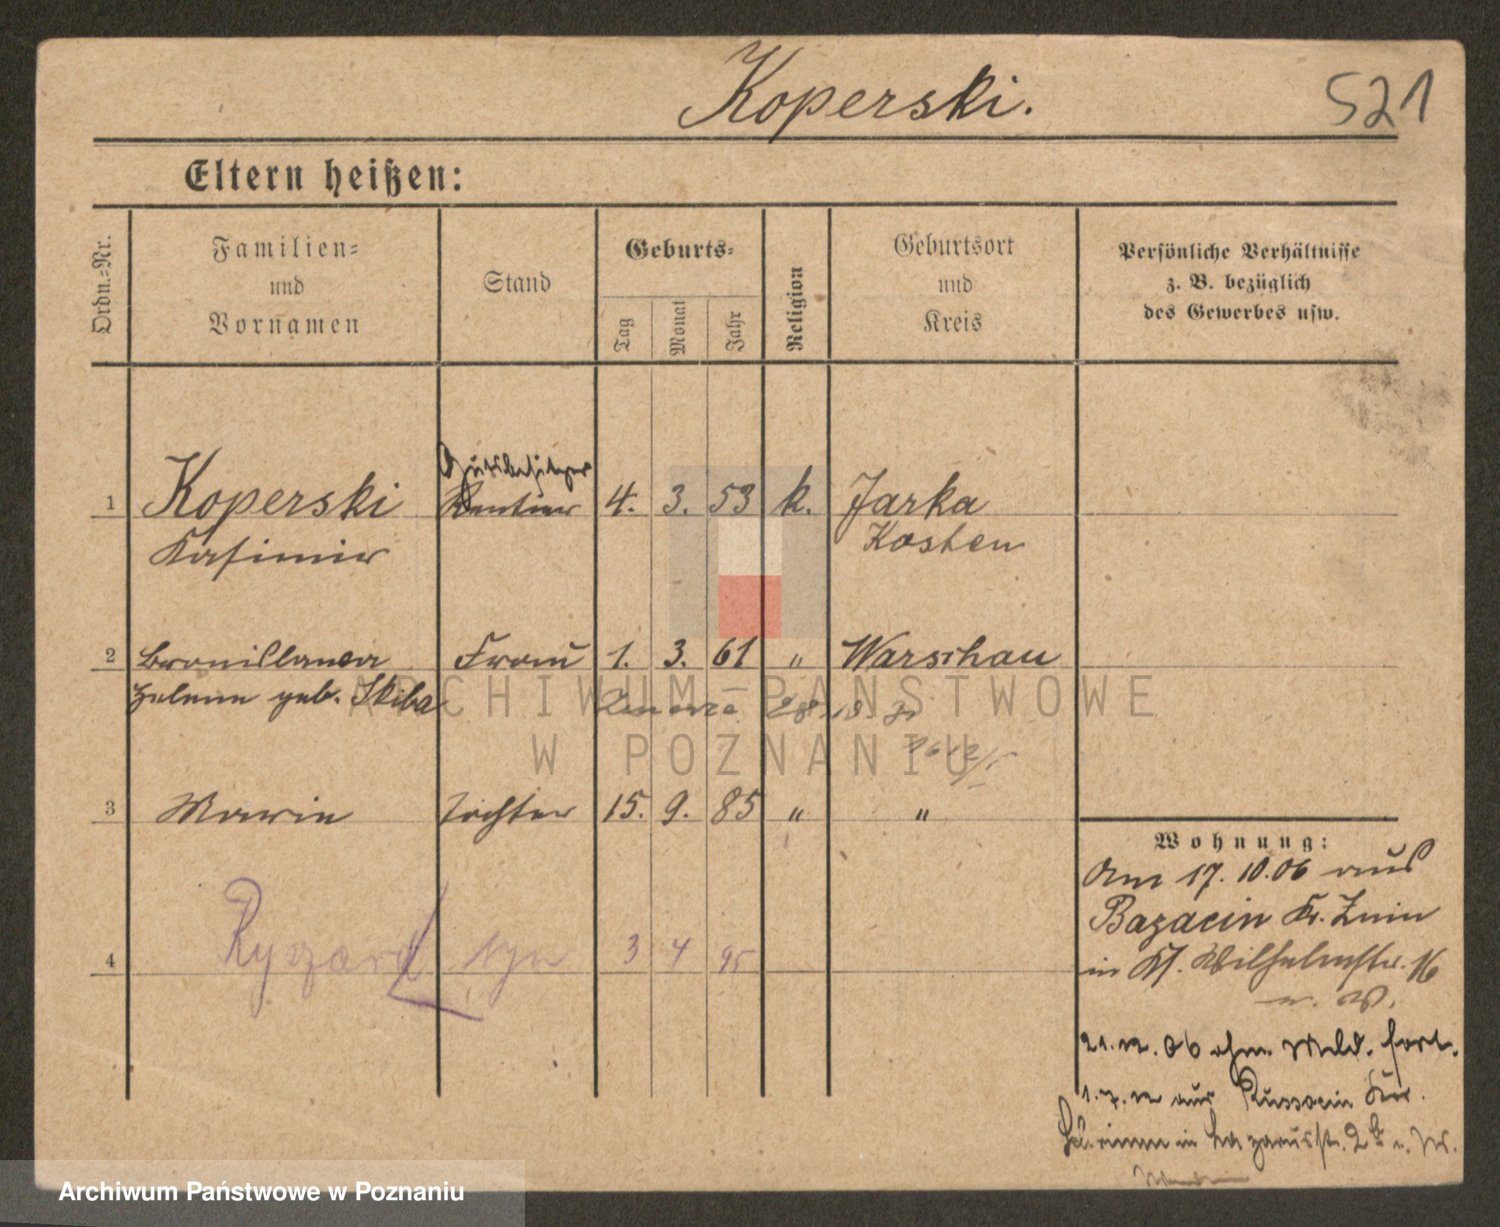 Koperski. 521
Eltern heißen:
Ordn.-Nr.
Familien-
und
Vornamen
Stand
Geburts-
Tag
Monat
Jahr
Religion
Geburtsort
und
Kreis
Persönliche Verhältnisse
z. B. bezüglich
des Gewerbes usw.
Gutsbesitzer
1 Koperski Rentier 4. 3. 53 k. Jarka
Kasimir Kosten
2 Bronislawa Frau 1. 3. 61 " Warschau
Helene geb. Skiba
ARCHIWUM PAŃSTWOWE
W POZNANIU
3 Marie Tochter 15. 9. 85 " "
Wohnung:
Am 17.10.06 aus
Bazacin Kr. Znin
in St. Wilhelmstr. 16
4 Ryszard syn 3 4 95
21.12.06 ohne Meld. fort.
1.7.12 aus Russocin Kr.
in Lazarusstr. 2
Archiwum Państwowe w Poznaniu